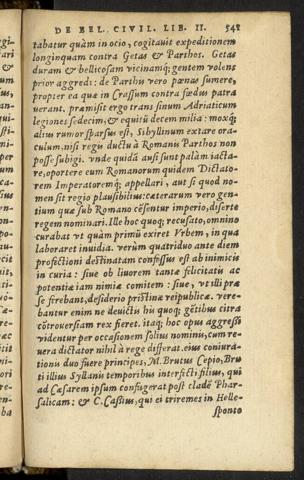 DE BEL. CIVIL. LIB. II. 548
tabatur quàm in ocio, cogitauit expeditionem
longinquam contra Getas & Parthos. Getas
duram & bellicosam vicinamq; gentem volens
prior aggredi: de Parthis vero pœnas sumere,
propter ea quæ in Crassum contra fœdus patra
uerant. præmisit ergo trans sinum Adriaticum
legiones sedecim, & equitũ decem milia: moxq;
alius rumor sparsus est, Sibyllinum extare ora-
culum, nisi regu ductu à Romanis Parthos non
posse subigi. vnde quidã ausi sunt palàm iacta-
re, oportere eum Romanorum quidem Dictato-
rem Imperatoremq; appellari, aut si quod no-
men sit regio plausibilius: cæterarum vero gen-
tium quæ sub Romano cẽsentur imperio, diserte
regem nominari. Ille hoc quoq; recusato, omnino
curabat vt quàm primũ exiret Vrbem, in qua
laboraret inuidia. verùm quatriduo ante diem
profectioni destinatam confossus est ab inimicis
in curia: siue ob liuorem tantæ felicitatis ac
potentiæ iam nimiæ comitem: siue, vt illi præ
se firebant, desiderio pristinæ reipublicæ. vere-
bantur enim ne deuictis hu quoq; gẽtibus citra
cõtrouersiam rex fieret. itaq; hoc opus aggressi
videntur per occasionem solius nominis, cum re-
uera dictator nihil à rege differat. eius coniura-
tionis duo fuere principes, M. Brutus Cepio, Bru
ti illius Syllanis temporibus interfecti filius, qui
ad Cæsarem ipsum confugerat post cladẽ Phar-
salicam: & C. Cassius, qui ei triremes in Helle-
sponto